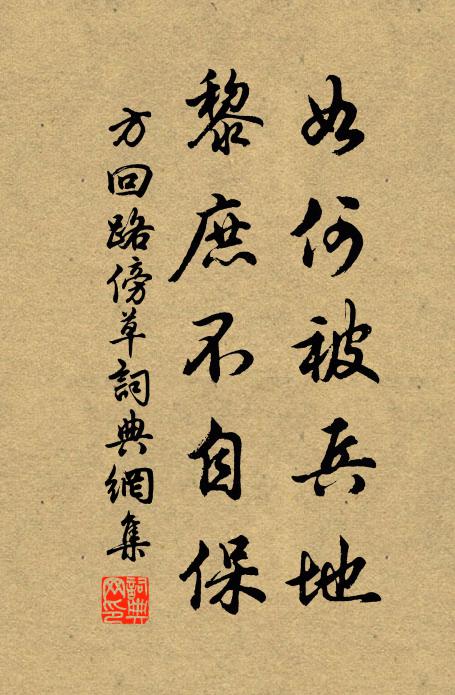 如何被兵地
黎庶不自保
方回路傍草詞典網集
詞典網印